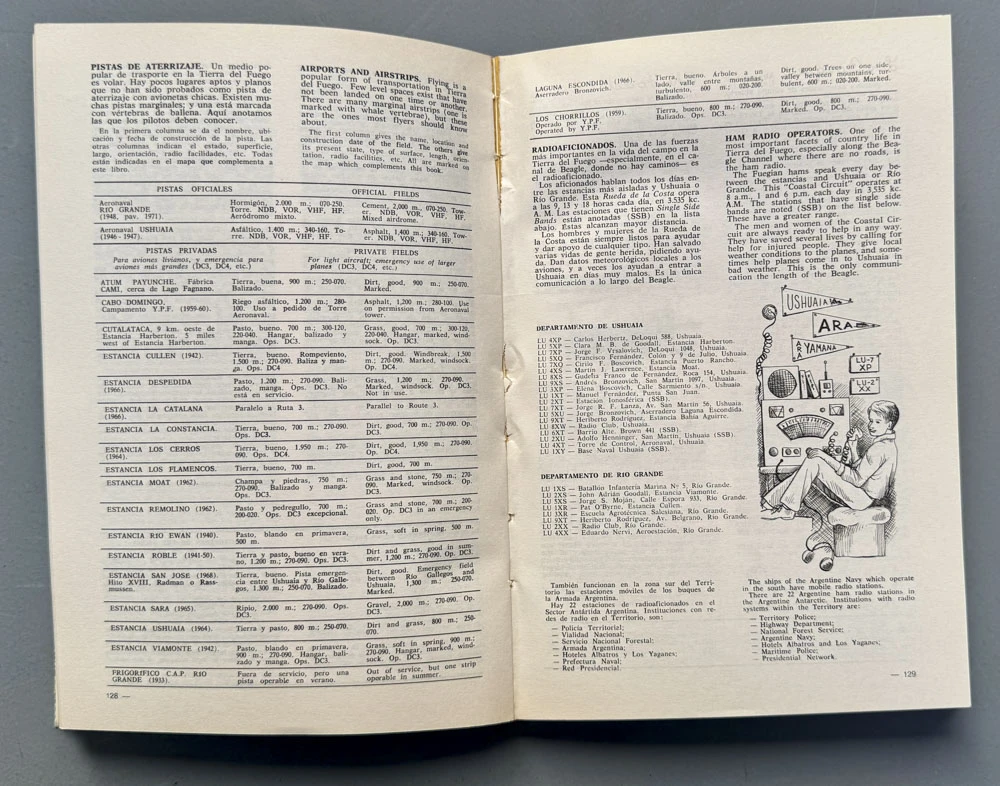 PISTAS DE ATERRIZAJE. Un medio po-
pular de trasporte en la Tierra del Fuego
es volar. Hay pocos lugares aptos y planos
que no han sido probados como pista de
aterrizaje con avionetas chicas. Existen mu-
chas pistas marginales; y una está marcada
con vértebras de ballena. Aquí anotamos
las que los pilotos deben conocer.
En la primera columna se da el nombre, ubi-
cación y fecha de construcción de la pista. Las
otras columnas indican el estado, superficie,
largo, orientación, radio facilidades, etc. Todas
están indicadas en el mapa que complementa a
este libro.
AIRPORTS AND AIRSTRIPS. Flying is a
popular form of transportation in Tierra
del Fuego. Few level spaces exist that have
not been landed on one time or another.
There are many marginal airstrips (one is
marked with whale vertebrae), but these
are the ones most flyers should know
about.
The first column gives the name, location and
construction date of the field. The others give
its present state, type of surface, length, orien-
tation, radio facilities, etc. All are marked on
the map which complements this book.
PISTAS OFICIALES
OFFICIAL FIELDS
Aeronaval
RIO GRANDE
(1948, pav. 1971).
Hormigón, 2.000 m.; 070-250.
Torre. NDB, VOR, VHF, HF.
Aeródromo mixto.
Cement, 2,000 m., 070-250, Tow-
er. NDB, VOR, VHF, HF.
Mixed airdrome.
Aeronaval USHUAIA
(1946 - 1947).
Asfáltico, 1.400 m.; 340-160. To-
rre. NDB, VOR, VHF, HF.
Asphalt, 1,400 m.; 340-160. Tow-
er. NDB, VOR, VHF, HF.
PISTAS PRIVADAS
PRIVATE FIELDS
Para aviones livianos, y emergencia para
aviones más grandes (DC3, DC4, etc.)
For light aircraft; emergency use of larger
planes (DC3, DC4, etc.)
ATUM PAYUNCHE. Fábrica
CAMI, cerca de Lago Fagnano.
Tierra, buena, 900 m.; 250-070.
Balizado.
Dirt, good, 900 m.; 250-070.
Marked.
CABO DOMINGO,
Campamento Y.P.F. (1959-60).
Riego asfáltico, 1.200 m.; 280-
100. Uso a pedido de Torre
Aeronaval.
Asphalt, 1,200 m.; 280-100. Use
on permission from Aeronaval
tower.
CUTALATACA, 9 km. oeste de
Estancia Harberton. 5 miles
west of Estancia Harberton.
Pasto, bueno, 700 m.; 300-120,
220-040. Hangar, balizado y
manga. Ops. DC3.
Grass, good, 700 m.; 300-120,
220-040. Hangar, marked, wind-
sock. Op. DC3.
ESTANCIA CULLEN (1942).
Tierra, bueno. Rompeviento,
1,500 m.; 270-090. Baliza y man-
ga. Ops. DC4
Dirt, good. Windbreak, 1,500
m.; 270-090. Marked, windsock,
Op. DC4.
ESTANCIA DESPEDIDA
(1966).
Pasto, 1.200 m.; 270-090. Bali-
zado, manga. Ops. DC3. No
está en servicio.
Grass, 1,200 m.; 270-090.
Marked, windsock. Op. DC3.
Not in use.
ESTANCIA LA CATALANA
(1966).
Paralelo a Ruta 3.
Parallel to Route 3.
ESTANCIA LA CONSTANCIA.
Tierra, bueno, 700 m.; 270-090.
Ops. DC3.
Dirt, good, 700 m.; 270-090. Op.
DC3.
ESTANCIA LOS CERROS
(1964).
Tierra, bueno, 1.950 m.; 270-
090. Ops. DC4.
Dirt, good, 1,950 m.; 270-090,
Op. DC4.
ESTANCIA LOS FLAMENCOS.
Tierra, bueno, 700 m.
Dirt, good, 700 m.
ESTANCIA MOAT (1962).
Champa y piedras, 750 m.;
270-090. Balizado y manga.
Ops. DC3.
Grass and stone, 750 m.; 270-
090. Marked, windsock. Op.
DC3.
ESTANCIA REMOLINO (1962).
Pasto y pedregullo, 700 m.;
200-020. Ops. DC3 excepcional.
Grass and stone, 700 m.; 200-
020. Op. DC3 in an emergency
only.
ESTANCIA RIO EWAN (1940).
Pasto, blando en primavera,
500 m.
Grass, soft in spring, 500 m.
ESTANCIA ROBLE (1941-50).
Tierra y pasto, bueno en vera-
no, 1,200 m.; 270-090. Ops. DC3.
Dirt and grass, good in sum-
mer, 1,200 m.; 270-090. Op. DC3.
ESTANCIA SAN JOSE (1968).
Hito XVIII, Radman o Rass-
mussen.
Tierra, bueno. Pista emergen-
cia entre Ushuaia y Río Galle-
gos, 1.300 m.; 250-070. Balizado.
Dirt, good. Emergency field
between Río Gallegos and
Ushuaia, 1,300 m.; 250-070.
Marked.
ESTANCIA SARA (1965).
Ripio, 2.000 m.; 270-090. Ops.
DC3.
Gravel, 2,000 m.; 270-090. Op.
DC3.
ESTANCIA USHUAIA (1964).
Tierra y pasto, 800 m.; 250-070.
Dirt and grass, 800 m.; 250-
070.
ESTANCIA VIAMONTE (1942).
Pasto, blando en primavera,
900 m.; 270-090. Hangar, bali-
zado y manga. Ops. DC3.
Grass, soft in spring, 900 m.;
270-090. Hangar, marked, wind-
sock. Op. DC3.
FRIGORIFICO C.A.P. RIO
GRANDE (1933).
Fuera de servicio, pero una
pista operable en verano.
Out of service, but one strip
operable in summer.
128 —
LAGUNA ESCONDIDA (1966).
Aserradero Bronzovich.
Tierra, bueno. Arboles a un
lado, valle entre montañas,
turbulento, 600 m.; 020-200.
Balizado.
Dirt, good. Trees on one side,
valley between mountains, tur-
bulent, 600 m.; 020-200. Marked.
LOS CHORRILLOS (1959).
Operado por Y.P.F.
Operated by Y.P.F.
Tierra, bueno, 800 m.; 270-090.
Balizado. Ops. DC3.
Dirt, good, 800 m.; 270-090.
Marked. Op. DC3.
RADIOAFICIONADOS. Una de las fuerzas
más importantes en la vida del campo en la
Tierra del Fuego —especialmente, en el ca-
nal de Beagle, donde no hay caminos— es
el radioaficionado.
Los aficionados hablan todos los días en-
tre las estancias más aisladas y Ushuaia o
Río Grande. Esta Rueda de la Costa opera
a las 9, 13 y 18 horas cada día, en 3.535 kc.
A. M. Las estaciones que tienen Single Side
Bands están anotadas (SSB) en la lista
abajo. Estas alcanzan mayor distancia.
Los hombres y mujeres de la Rueda de
la Costa están siempre listos para ayudar
y dar apoyo de cualquier tipo. Han salvado
varias vidas de gente herida, pidiendo ayu-
da. Dan datos meteorológicos locales a los
aviones, y a veces los ayudan a entrar a
Ushuaia en días muy malos. Es la única
comunicación a lo largo del Beagle.
HAM RADIO OPERATORS. One of the
most important facets of country life in
Tierra del Fuego, especially along the Bea-
gle Channel where there are no roads, is
the ham radio.
The Fuegian hams speak every day be-
tween the estancias and Ushuaia or Río
Grande. This "Coastal Circuit" operates at
8 a.m., 1 and 6 p.m. each day in 3,535 kc.
A.M. The stations that have single side
bands are noted (SSB) on the list below.
These have a greater range.
The men and women of the Coastal Cir-
cuit are always ready to help in any way.
They have saved several lives by calling for
help for injured people. They give local
weather conditions to the planes, and some-
times help planes come in to Ushuaia in
bad weather. This is the only communi-
cation the length of the Beagle.
DEPARTAMENTO DE USHUAIA
LU 4XP — Carlos Herbertz, DeLoqui 588, Ushuaia.
LU 5XP — Clara M. B. de Goodall, Estancia Harberton.
LU 7XP — Jorge F. Vrsalovich, DeLoqui 1048, Ushuaia.
LU 5XQ — Francisco Fernández, Colón y 9 de Julio, Ushuaia.
LU 7XQ — Cirilo F. Boscovich, Estancia Puerto Rancho.
LU 4XS — Martín J. Lawrence, Estancia Moat.
LU 8XS — Gudefia Franco de Fernández, Roca 154, Ushuaia.
LU 9XS — Andrés Bronzovich, San Martín 1097, Ushuaia.
LU 3XP — Elena Boscovich, Calle Sarmiento s/n. Ushuaia.
LU 1XT — Manuel Fernández, Punta San Juan.
LU 2XT — Estación Ionosférica (SSB).
LU 7XT — Jorge R. F. Lanza, Av. San Martín 56, Ushuaia.
LU 5XU — Jorge Bronzovich, Aserradero Laguna Escondida.
LU 9XT — Heriberto Rodríguez, Estancia Bahía Aguirre.
LU 8XW — Radio Club, Ushuaia.
LU 6XT — Barrio Alte. Brown 441 (SSB).
LU 2XU — Adolfo Henninger, San Martín, Ushuaia (SSB).
LU 4XT — Torre de Control, Aeronaval, Ushuaia.
LU 1XY — Base Naval Ushuaia (SSB).
DEPARTAMENTO DE RIO GRANDE
LU 1XS — Batallón Infantería Marina Nº 5, Río Grande.
LU 2XS — John Adrián Goodall, Estancia Viamonte.
LU 5XS — Jorge S. Moján, Calle Espora 933, Río Grande.
LU 1XR — Pat O'Byrne, Estancia Cullen.
LU 3XR — Escuela Agrotécnica Salesiana, Río Grande.
LU 9XT — Heriberto Rodríguez, Av. Belgrano, Río Grande.
LU 2XX — Radio Club, Río Grande.
LU 4XX — Eduardo Nervi, Aeroestación, Río Grande.
USHUAIA
ARA
ARA
YAMANA
LU-7
XP
LU-2
XX
También funcionan en la zona sur del Terri-
torio las estaciones móviles de los buques de
la Armada Argentina.
Hay 22 estaciones de radioaficionados en el
Sector Antártida Argentina. Instituciones con re-
des de radio en el Territorio, son:
— Policía Territorial;
— Vialidad Nacional;
— Servicio Nacional Forestal;
— Armada Argentina;
— Hoteles Albatros y Los Yaganes;
— Prefectura Naval;
— Red Presidencial.
The ships of the Argentine Navy which operate
in the south have mobile radio stations.
There are 22 Argentine ham radio stations in
the Argentine Antarctic. Institutions with radio
systems within the Territory are:
— Territory Police;
— Highway Department;
— National Forest Service;
— Argentine Navy;
— Hotels Albatros and Los Yaganes;
— Maritime Police;
— Presidential Network.
— 129